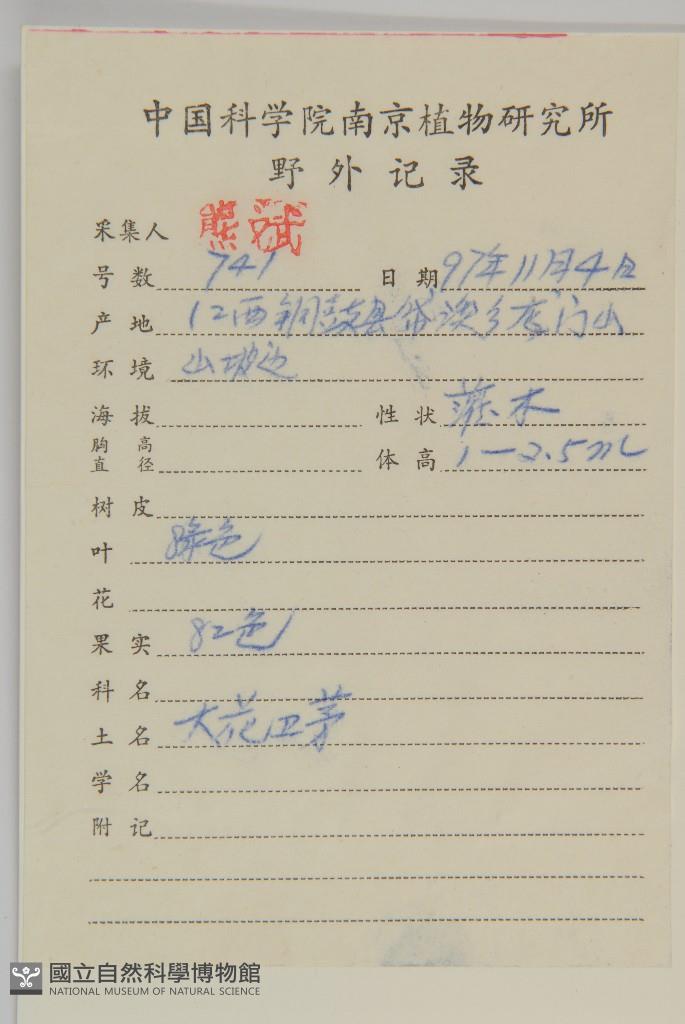 中国科学院南京植物研究所
野外记录
采集人 熊斌
号数 741 日期 97年11月4日
产地 江西铜鼓县带溪乡龙门山
环境 山坡边
海拔 性状 灌木
胸高直径 体高 1—2.5m
树皮
叶 绿色
花
果实 红色
科名
土名 大花卫茅
学名
附记
國立自然科學博物館
NATIONAL MUSEUM OF NATURAL SCIENCE